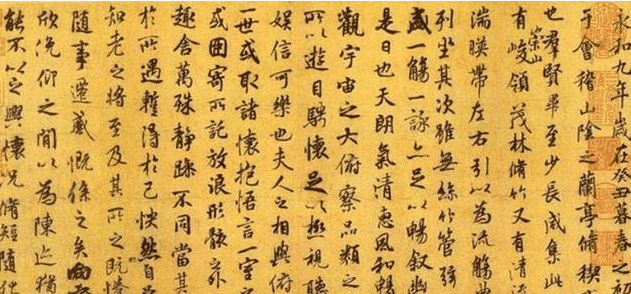 永和九年歲在癸丑暮春之初
于會稽山陰之蘭亭脩禊
也羣賢畢至少長咸集此
有崇山峻領茂林脩竹又有清流
湍暎帶左右引以為流觴曲
列坐其次雖無絲竹管弦
盛一觴一詠亦足以暢敘幽
是日也天朗氣清惠風和暢
觀宇宙之大俯察品類之
所以遊目騁懷足以極視聽
娛信可樂也夫人之相與俯
一世或取諸懷抱悟言一室之
或因寄所託放浪形骸之外
趣舍萬殊靜躁不同當其
於所遇蹔得於己怏然自
知老之將至及其所之既惓
隨事遷感慨係之矣向
欣俛仰之間以為陳迹猶
能不以之興懷況脩短隨化